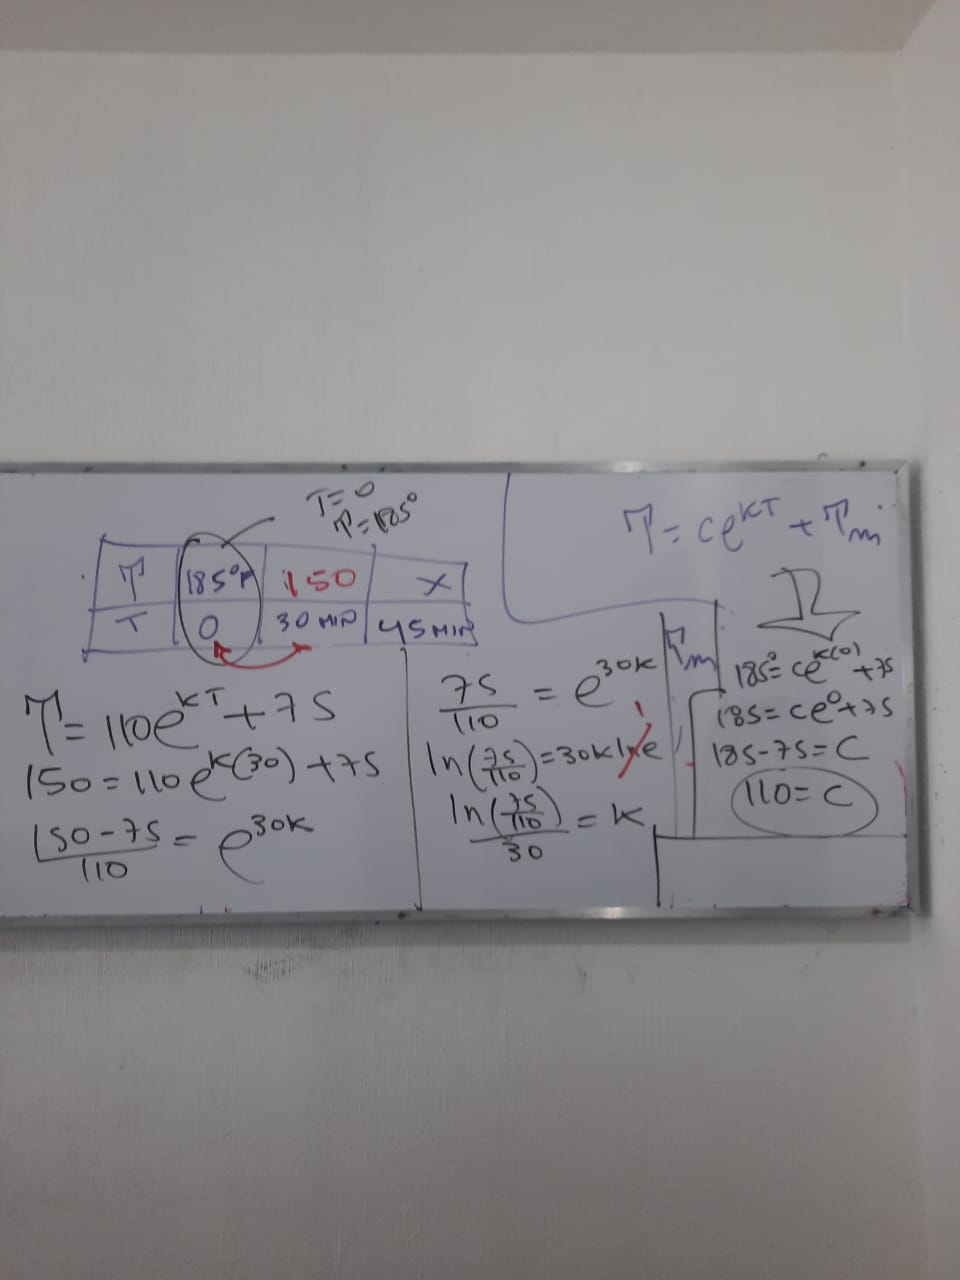 T=0
T=185°
T 185°F 150 X
T 0 30 MIN 45 MIN
T=110e^KT+75
150=110e^K(30)+75
150-75/110=e^30K
75/110=e^30K
ln(75/110)=30K lne
1
ln(75/110)/30=K
T=ce^KT+Tm
Tm
185°=ce^K(0)+75
185=ce^0+75
185-75=C
110=C